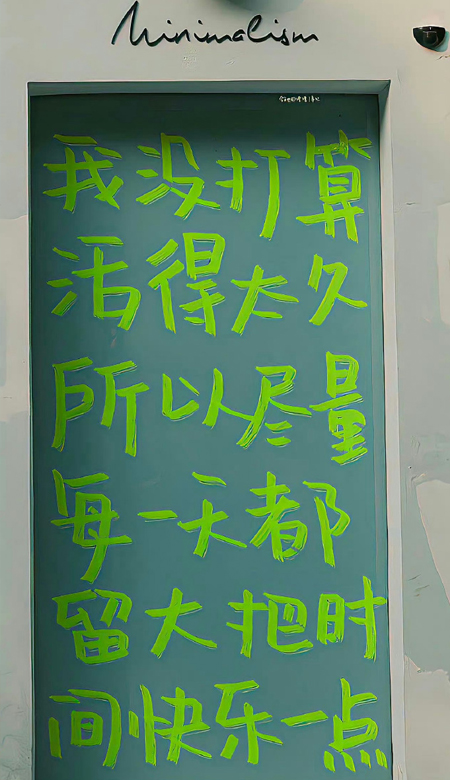 Minimalism
我没打算
活得太久
所以尽量
每一天都
留大把时
间快乐一点